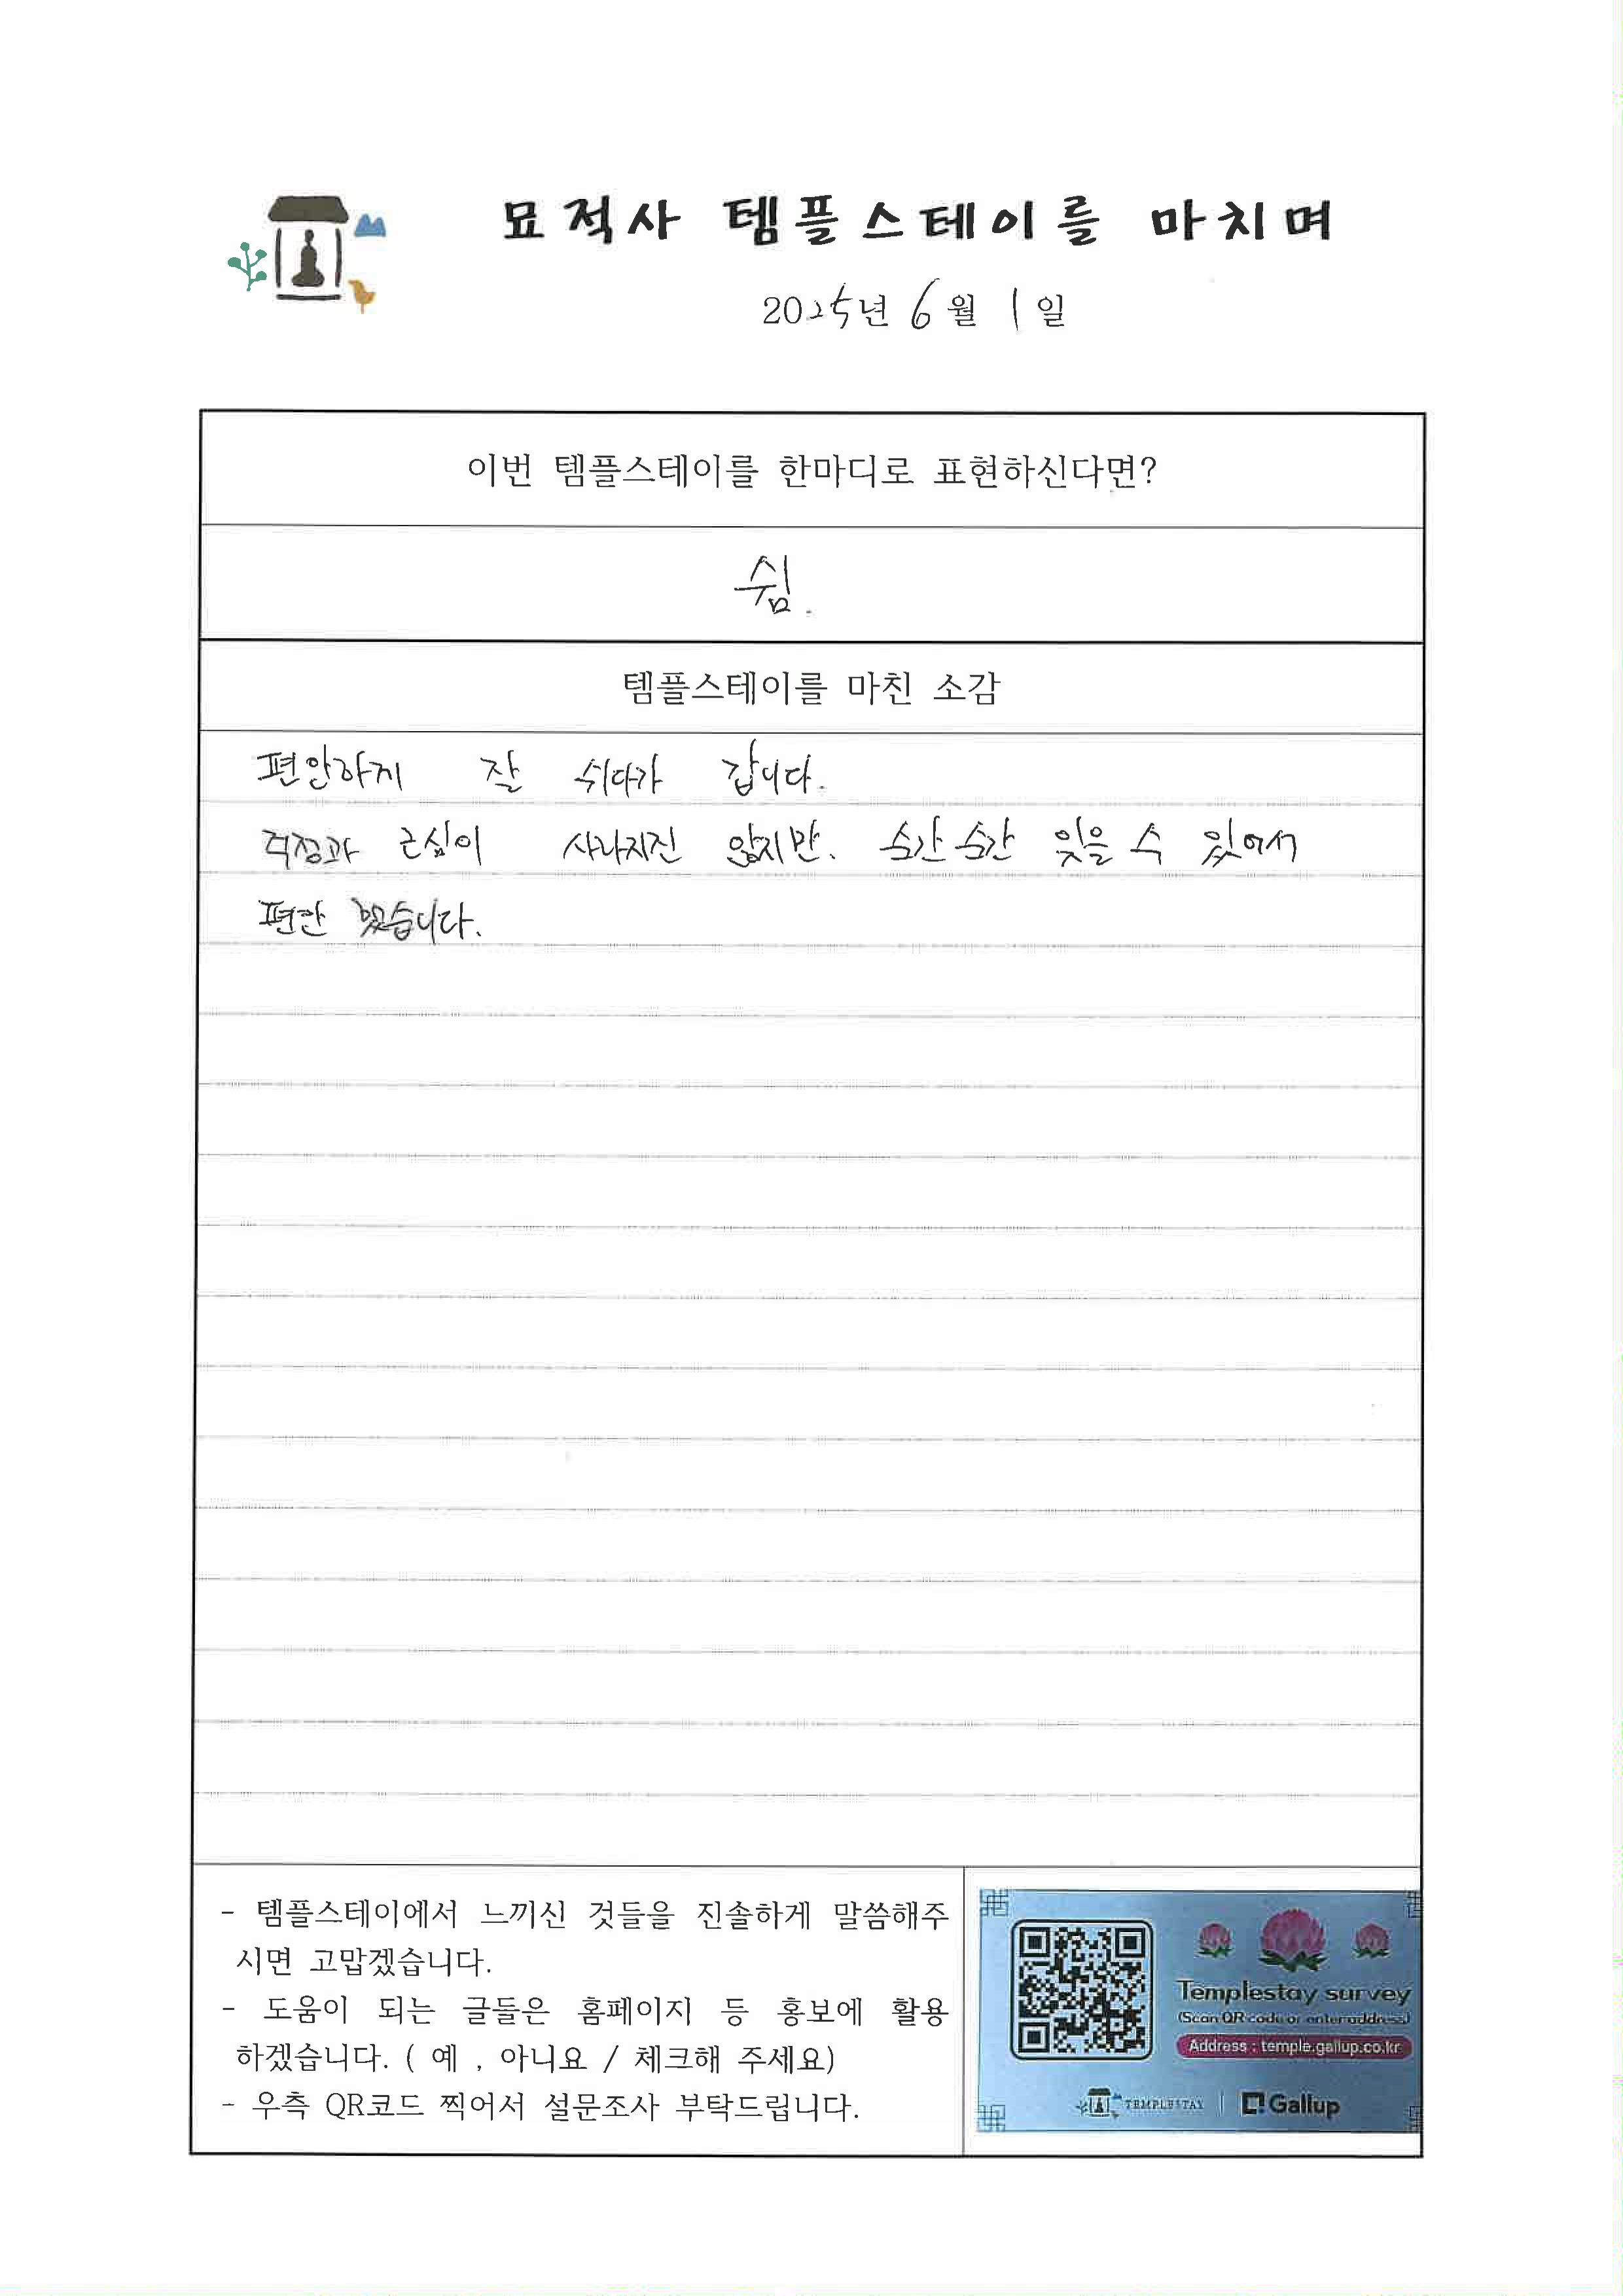 묘적사 템플스테이를 마치며
2025년 6월 1일
이번 템플스테이를 한마디로 표현하신다면?
쉼.
템플스테이를 마친 소감
편안하게 잘 쉬다가 갑니다.
걱정과 근심이 사라지진 않지만. 순간순간 잊을 수 있어서
편안했습니다.
- 템플스테이에서 느끼신 것들을 진솔하게 말씀해주
시면 고맙겠습니다.
- 도움이 되는 글들은 홈페이지 등 홍보에 활용
하겠습니다. ( 예 , 아니요 / 체크해 주세요)
- 우측 QR코드 찍어서 설문조사 부탁드립니다.
Templestay survey
(Scan QR code or enter address)
Address : temple.gallup.co.kr
TEMPLESTAY | Gallup